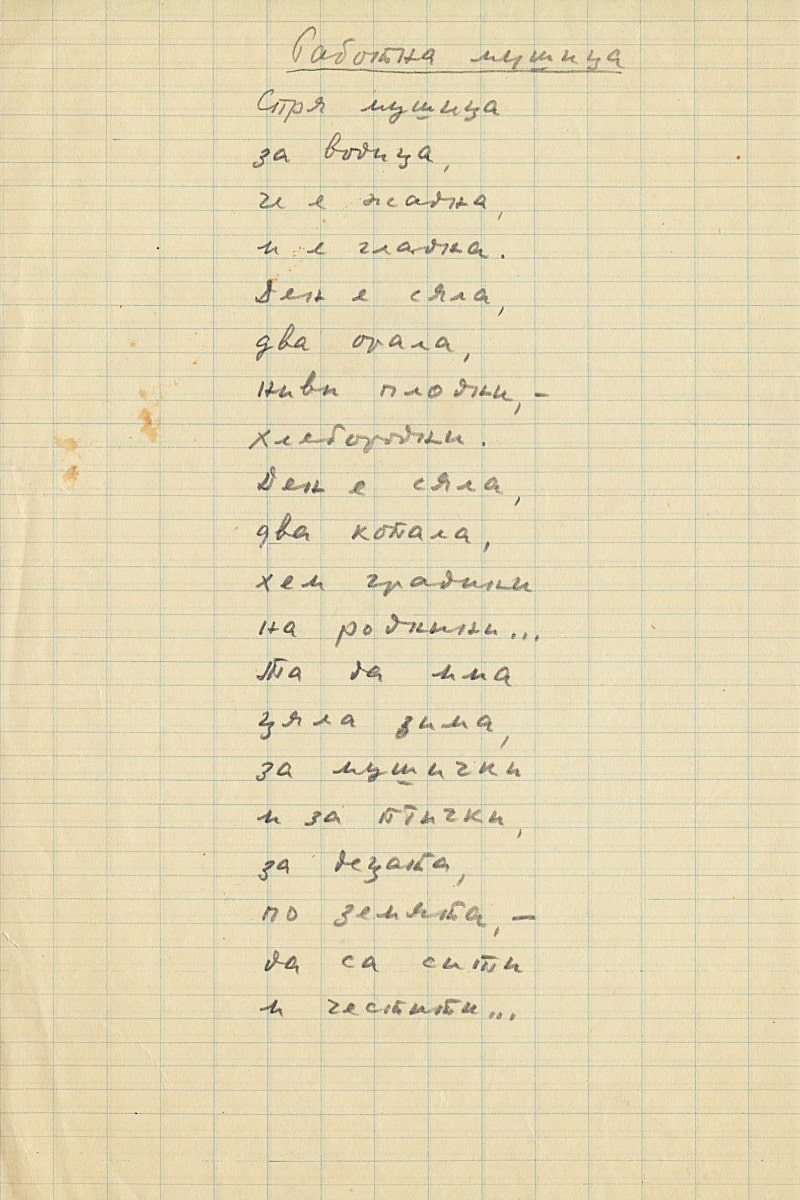 Работна мушица
Спря мушица
за водица,
че е жадна,
и е гладна.
Ден е сяла,
два орала,
ниви плодни,–
хлебородни.
Ден е сяла,
два копала,
хем градини
на роднини...
Та да има
цяла зима,
за мушички
и за птички,
за децата,
по земята,–
да са сити
и честити...